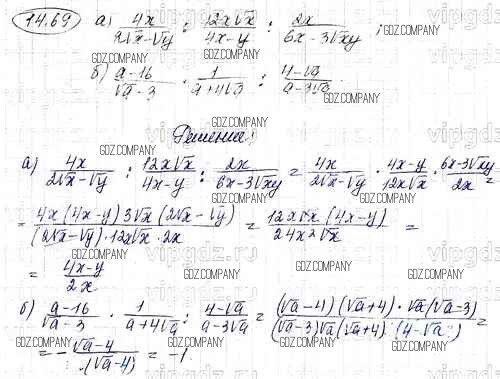 14.69 а) 4x/(2√x-√y) : 12x√x/(4x-y) : 2x/(6x-3√xy) ;
б) (a-16)/(√a-3) · 1/(a+4√a) : (4-√a)/(a-3√a)
Решение:
а) 4x/(2√x-√y) : 12x√x/(4x-y) : 2x/(6x-3√xy) = 4x/(2√x-√y) · (4x-y)/(12x√x) · (6x-3√xy)/(2x) =
= 4x(4x-y)3√x(2√x-√y)/((2√x-√y)·12x√x·2x) = 12x√x(4x-y)/(24x²√x) =
= (4x-y)/(2x)
б) (a-16)/(√a-3) · 1/(a+4√a) : (4-√a)/(a-3√a) = (√a-4)(√a+4)·√a(√a-3)/((√a-3)√a(√a+4)(4-√a)) =
= -(√a-4)/(√a-4) = -1.
GDZ.COMPANY
vipgdz.ru